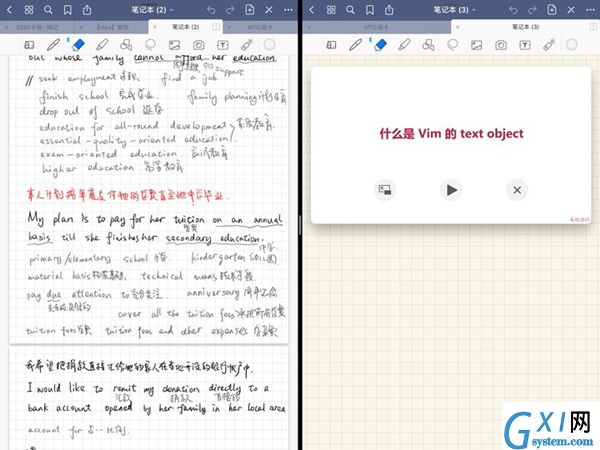 笔记本 (2)
2020手账·随记
【mba】数学
笔记本 (2)
but whose family cannot afford her education.
support
// seek employment 求职. find a job
finish school 完成学业 family planning 计划生育
drop out of school 退学
education for all-round development
essential-quality-oriented education 素质教育.
exam-oriented education. 应试教育
higher education 高等教育
本人计划按年度支付她的学费直至她中学毕业.
My plan is to pay for her tuition on an annual
学费
basis till she finishes her secondary education.
中等
primary/elementary school 小学. kindergarten (幼儿园)
material basis 物质基础, technical means 技术手段
pay due attention to 充分关注. anniversary 周年纪念
cover all the tuition fees 承担所有学费
tuition fees 学费 tuition fees and other expenses 学杂费
我希望把捐款直接汇给她的家人在当地开设的银行帐户中.
I would like to remit my donation directly to a
汇款 捐款 直接的
bank account opened by her family in her local area
account for 占…比例.
笔记本 (3)
MTG组卡
笔记本 (3)
什么是 Vim 的 text object
GXI网
system.com